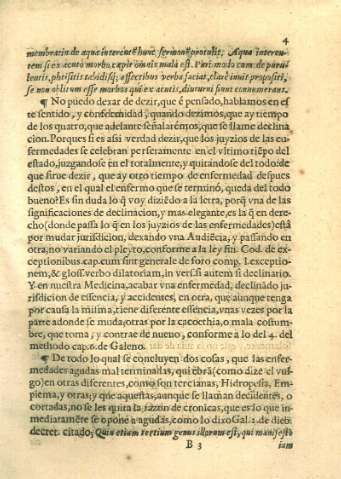 4
membratin de aqua intercute hunc sermonē protulit: Aqua intercu-
tem si ex acuto morbo cœpit omnis mala est. Pari modo cum de purul-
lentis, phtisicis tabidisq; affectibus verba faciat, clarè innit propositi,
se non oblitum esse morbos qui ex acutis, diuturni fiunt connumerare.
¶ No puedo dexar de dezir, que é pensado, hablamos en es
te sentido, y conformidad, quando dezimos, que ay tiempo
de los quatro, que adelante señalarémos, que se llame declina
cion. Porque si es assi verdad dezir, que los juyzios de las en-
fermedades se celebran perseramente en el vltimo tiēpo del
estado, juzgandose en el totalmente, y quitandose del todo: de
que sirue dezir, que ay otro tiempo de enfermedad despues
destos, en el qual el enfermo que se terminó, queda del todo
bueno? Es sin duda lo q̄ voy diziēdo a la letra, porq̄ vna de las
significaciones de declinacion, y mas elegante, es la q̄ en dere-
cho (donde passa lo q̄ en los juyzios de las enfermedades) está
por mudar jurisdicion, dexando vna Audiēcia, y passando en
otra, no variando el pleyto, conforme a la ley fin. Cod. de ex-
ceptionibus. cap. cum sint generale de foro comp. l. exception-
nem, & gloss. verbo dilatoriam, in vers. si autem si declinario.
Y en nuestra Medicina, acabar vna enfermedad, declinādo ju-
risdicion de essencia, y accidentes, en otra, que aunque tenga
por causa la misma, tiene diferente essencia, vnas vezes por la
parte adonde se muda, otras por la cacochia, o mala costum-
bre, que toma, y contrae de nueuo, conforme a lo del 4. del
methodo cap. 6. de Galeno.
¶ De todo lo qual se concluyen dos cosas, que las enfer-
medades agudas mal terminadas, qui ebrā (como dize el vul-
go) en otras diferentes, como son tercianas, Hidropesia, Em-
piema, y otras; y que aquestas, aunque se llaman decidentes, o
cortadas, no se les quita la razon de cronicas, que es lo que in-
mediatamēte se opone a agudas, como lo dixo Gal. 2. de dieb.
decret. citado; Quin etiam tertium genus illorum est, qui manifesto
B 3
iam